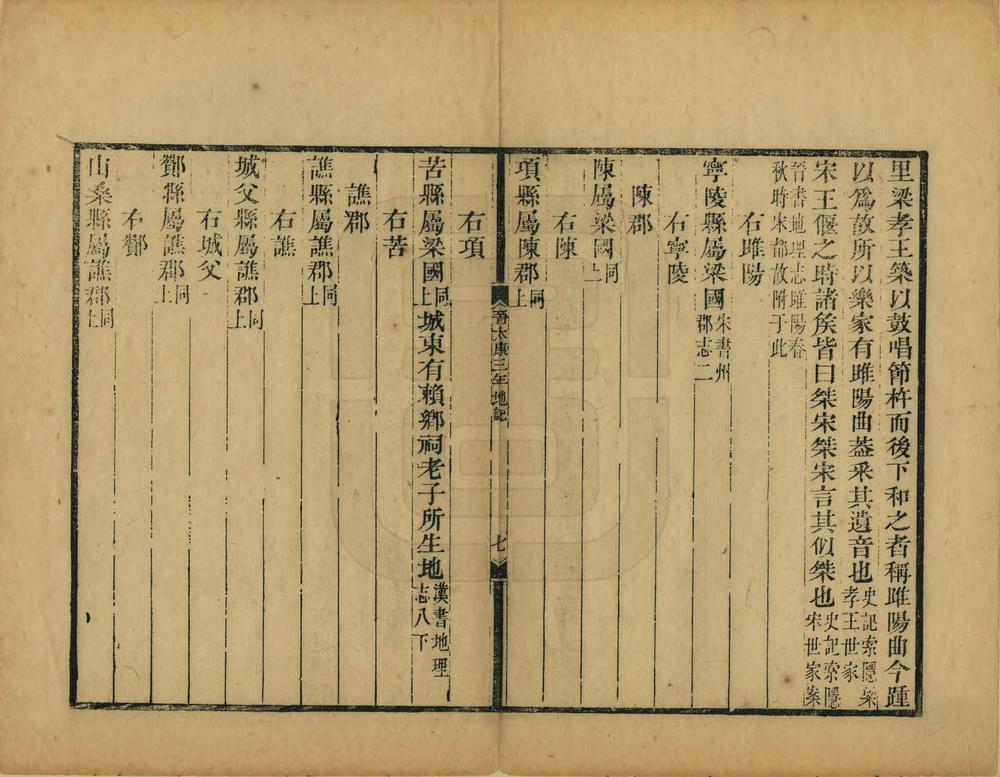 里梁孝王築以鼓唱節杵而後下和之者稱睢陽曲今踵
以爲故所以樂家有睢陽曲蓋采其遺音也史記索隱梁孝王世家
宋王偃之時諸矦皆曰桀宋桀宋言其似桀也史記索隱宋世家案
晉書地理志睢陽春秋時宋都故附于此
右睢陽
寧陵縣屬梁國宋書州郡志二
右寧陵
陳郡
陳屬梁國同上
右陳
項縣屬陳郡同上
晉太康三年地記
七
右項
苦縣屬梁國同上城東有賴鄉祠老子所生地漢書地理志八下
右苦
譙郡
譙縣屬譙郡同上
右譙
城父縣屬譙郡同上
右城父
酇縣屬譙郡同上
右酇
山桑縣屬譙郡同上